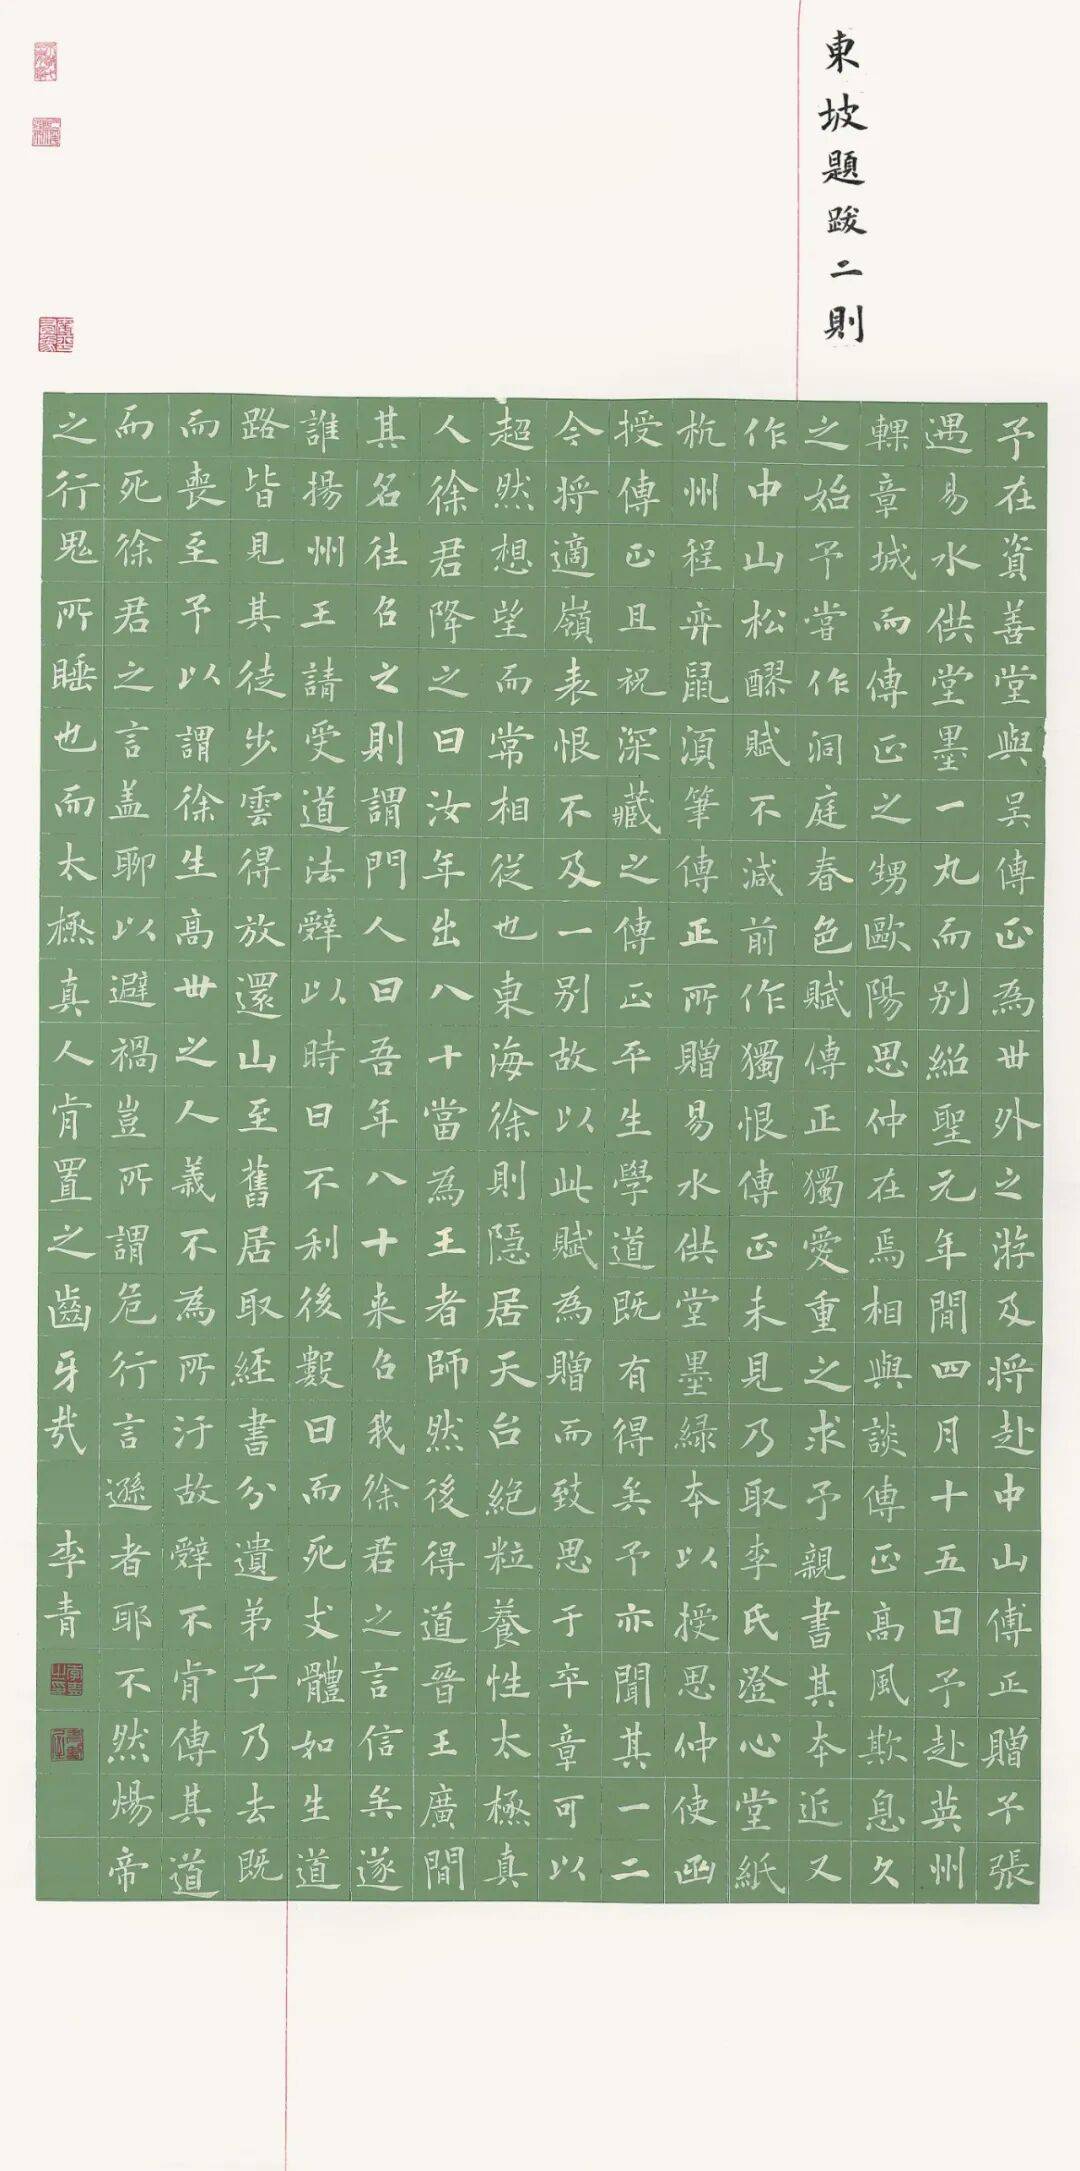 東坡題跋二則
予在資善堂與吴傅正為世外之游及将赴中山傅正贈予張
遇易水供堂墨一丸而别紹聖元年閏四月十五日予赴英州
輠章城而傅正之甥歐陽思仲在焉相與談傅正高風欺息久
之始予嘗作洞庭春色賦傅正獨愛重之求予親書其本近又
作中山松醪賦不減前作獨恨傅正未見乃取李氏澄心堂紙
杭州程弈鼠湏筆傅正所贈易水供堂墨緑本以授思仲使函
授傅正且祝深藏之傅正平生學道既有得矣予亦聞其一二
今将適嶺表恨不及一别故以此賦為贈而致思于卒章可以
超然想望而常相從也東海徐則隠居天台絶粒養性太極真
人徐君降之曰汝年出八十當為王者師然後得道晉王廣聞
其名往召之則謂門人曰吾年八十来召我徐君之言信矣遂
詣揚州王請受道法辤以時日不利後數日而死支體如生道
路皆見其徒步雲得放還山至舊居取經書分遺弟子乃去既
而喪至予以謂徐生高世之人義不為所汙故辤不肯傳其道
而死徐君之言盖聊以避禍豈所謂危行言遜者耶不然煬帝
之行鬼所睡也而太極真人肯置之齒牙哉 李青